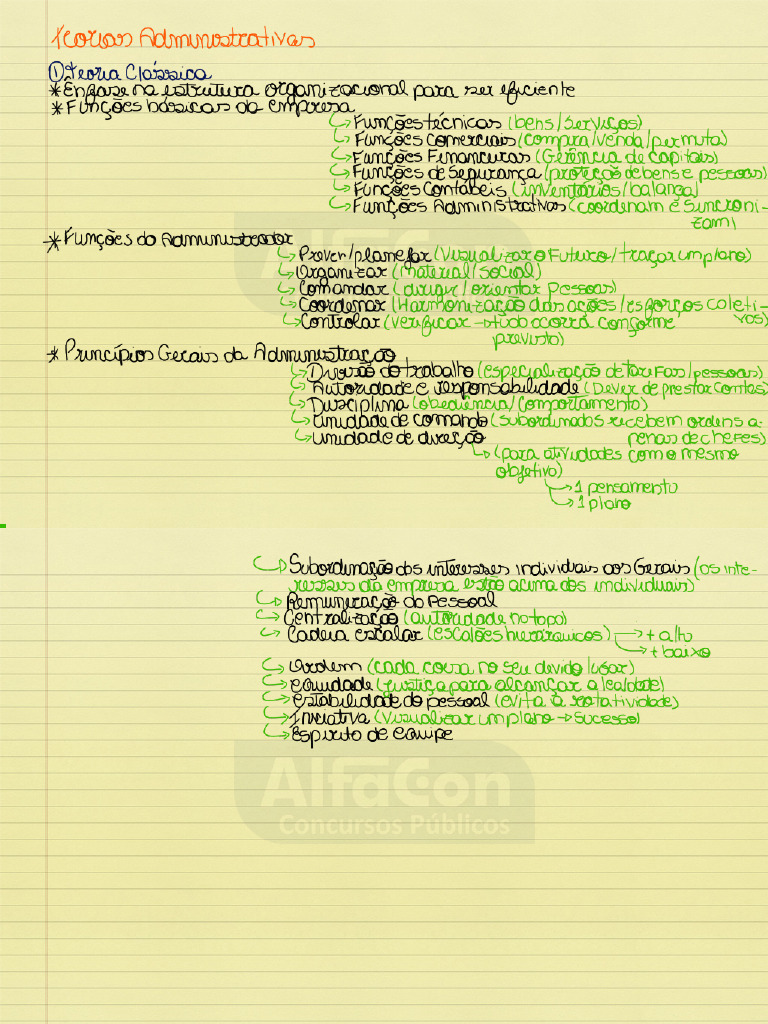 Teorias Administrativas
① Teoria Clássica
* Ênfase na estrutura organizacional para ser eficiente
* Funções básicas da empresa
↳ Funções técnicas (bens/serviços)
↳ Funções Comerciais (compra/venda/permuta)
↳ Funções Financeiras (Gerência de capitais)
↳ Funções de Segurança (proteção de bens e pessoas)
↳ Funções Contábeis (inventários/balança)
↳ Funções Administrativas (coordenam e sincroni-
zam)
* Funções do Administrador
↳ Prever/planejar (visualizar o Futuro/traçar um plano)
↳ Organizar (material/social)
↳ Comandar (dirigir/orientar pessoas)
↳ Coordenar (Harmonização das ações/esforços coleti-
vos)
↳ Controlar (verificar → tudo ocorra conforme
previsto)
* Princípios Gerais da Administração
↳ Divisão do trabalho (especialização de tarifas/pessoas)
↳ Autoridade e responsabilidade (Dever de prestar contas)
↳ Disciplina (obediência/comportamento)
↳ Unidade de comando (subordinados recebem ordens a-
penas de chefes)
↳ Unidade de direção
↳ (para atividades com o mesmo
objetivo)
→ 1 pensamento
→ 1 plano
↳ Subordinação dos interesses individuais aos Gerais (os inte-
resses da empresa estão acima dos individuais)
↳ Remuneração do Pessoal
↳ Centralização (autoridade no topo)
↳ Cadeia escalar (escalões hierárquicos) → + alto
→ + baixo
↳ Ordem (cada coisa no seu devido lugar)
↳ equidade (justiça para alcançar a lealdade)
↳ estabilidade do pessoal (evita a rotatividade)
↳ Iniciativa (visualizar um plano → sucesso)
↳ Espírito de equipe
AlfaCon
Concursos Públicos